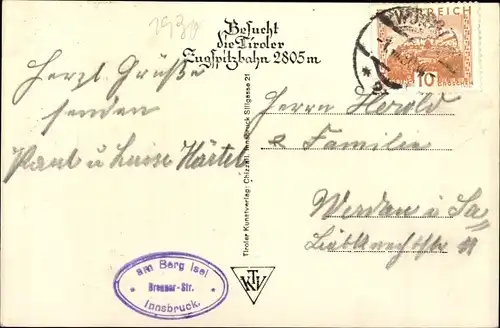 1930
Besucht
die Tiroler
Zugspitzbahn 2805 m
REICH
10
GROSCHEN
Herzl. Grüße
senden
Paul u Luise Härtel
Tiroler Kunstverlag: Chizzali, Innsbruck Stillgasse 21
Herrn Herold
& Familie
Werdau i. Sa
Liebknechtstr 11
am Berg Isel
Brenner-Str.
Innsbruck.
KTV